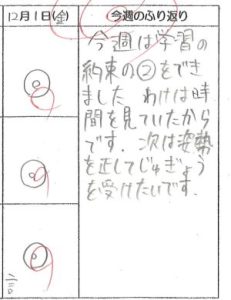 12月1日(金)
今週のふり返り
今週は学習の
約束の②をでき
ました わけは時
間を見ていたから
です。次は姿勢
を正してじゅぎょう
を受けたいです。